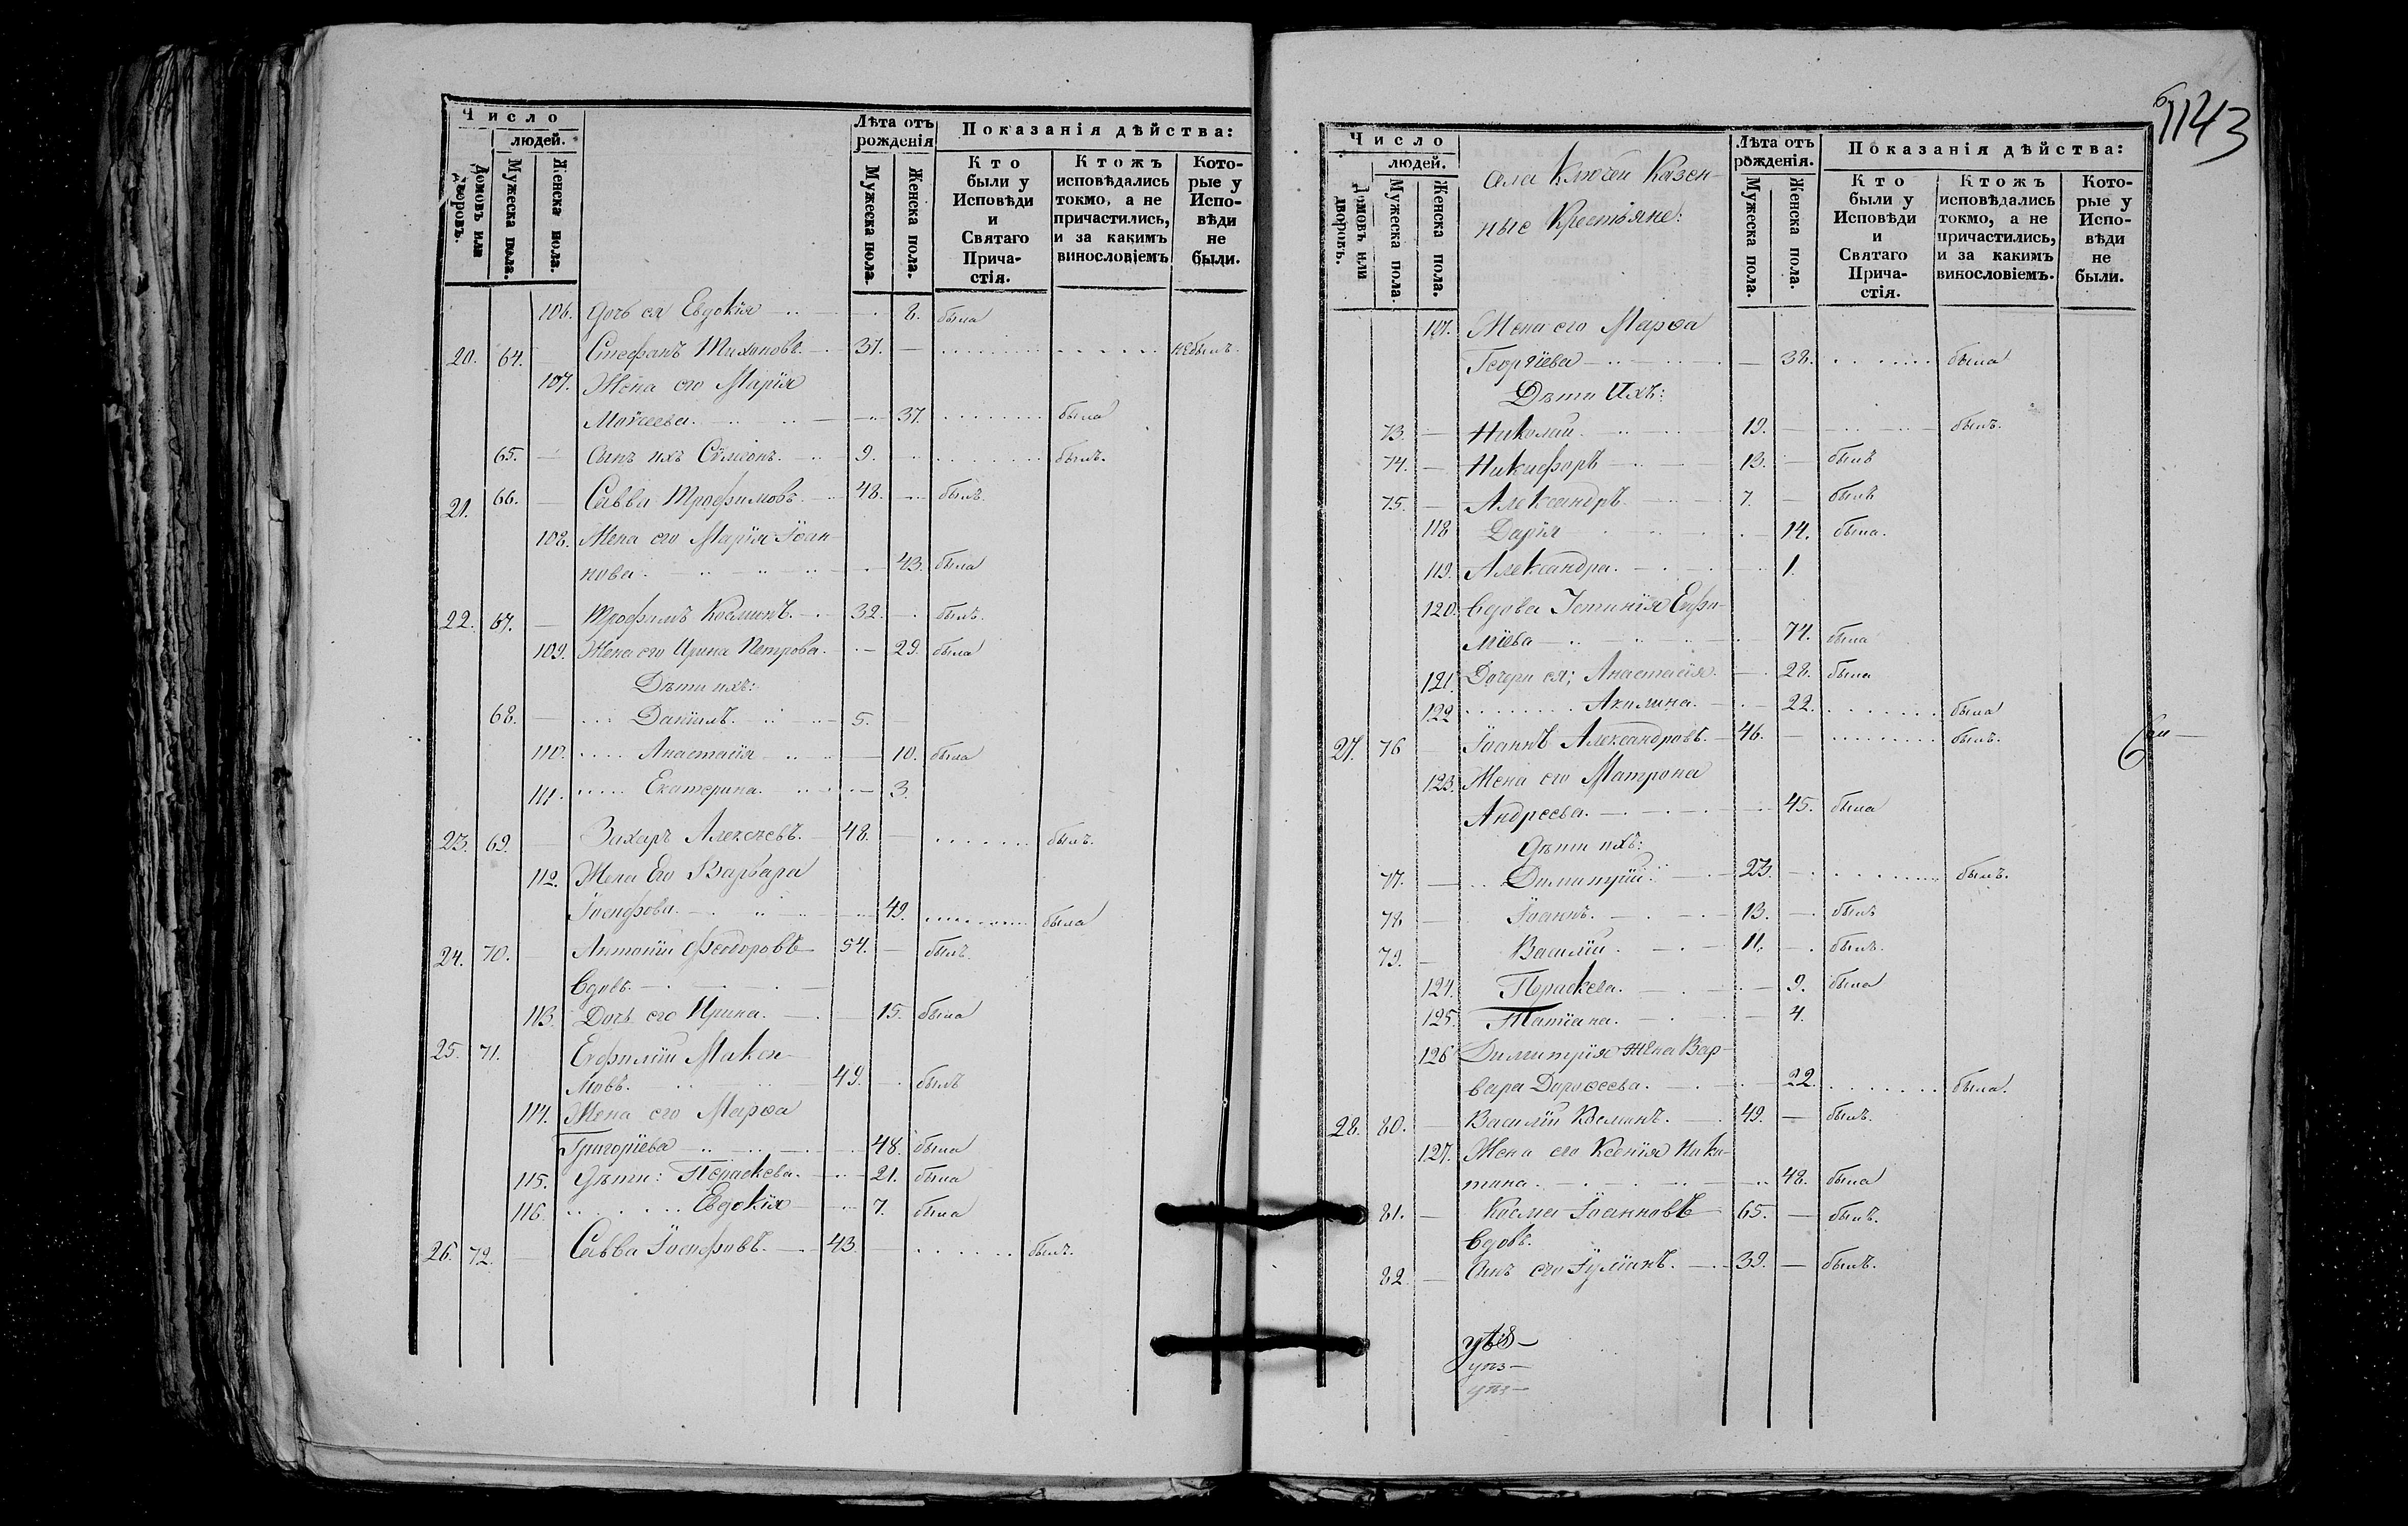 Число
людей.
Домовъ или дворовъ.
Мужеска пола.
Женска пола.
Лѣта отъ рожденія
Мужеска пола.
Женска пола.
Показанія дѣйства:
Кто были у Исповѣди и Святаго Причастія.
Ктожъ исповѣдались токмо, а не причастились, и за какимъ винословіемъ
Которые у Исповѣди не были.
106. Дочь ея Евдокія 8. была
20. 64. Стефанъ Тихоновъ. 37. не былъ.
107. Жена его Марія
Моѵсеева. 37. была
65. Сынъ ихъ Сѵмеонъ. 9. былъ.
21. 66. Савва Трофимовъ. 48. былъ.
108. Жена его Марія Іоан-
нова. 43. была
22. 67. Трофимъ Косминъ. 32. былъ.
109. Жена его Ирина Петрова. 29. была
Дѣти ихъ:
68. Даніилъ. 5.
110. Анастасія 10. была
111. Екатерина. 3.
23. 69. Захаръ Алексѣевъ. 48. былъ.
112. Жена Его Варвара
Іосифова. 49. была
24. 70. Антоній Феодоровъ 54. былъ.
Вдовъ.
113. Дочь его Ирина. 15. была
25. 71. Евфимій Макси-
мовъ. 49. былъ
114. Жена его Марѳа
Григоріева 48. была
115. Дѣти: Параскева. 21. была
116. Евдокія 7. была
26. 72. Савва Іосифовъ. 43. былъ.
1143
Число
людей.
Домовъ или дворовъ.
Мужеска пола.
Женска пола.
села Ключей Казен-
ные Крестьяне:
Лѣта отъ рожденія.
Мужеска пола.
Женска пола.
Показанія дѣйства:
Кто были у Исповѣди и Святаго Причастія.
Ктожъ исповѣдались токмо, а не причастились, и за какимъ винословіемъ.
Которые у Исповѣди не были.
117. Жена его Марѳа
Георгіева 38. была
Дѣти Ихъ:
73. Николай. 19. былъ.
74. Никифоръ 13. былъ
75. Александръ. 7. былъ
118 Дарія 14. была.
119. Александра. 1.
120. Вдова Устинія Евфи-
міева 74. была
121. Дочери ея; Анастасія. 28. была
122 Акилина. 22. была
27. 76 Іоаннъ Александровъ. 46. былъ.
123. Жена его Матрона
Андреева. 45. была
Дѣти ихъ:
77. Димитрій. 23. былъ.
78 Іоаннъ. 13. былъ
79. Василій. 11. былъ.
124. Параскева. 9. была
125. Татіана. 4.
126 Димитрія жена Вар-
вара Дороѳеева. 22. была.
28. 80. Василій Косминъ. 49. былъ.
127. Жена его Ксенія Ники-
тина. 48. была
81. Косма Іоанновъ 65. былъ.
Вдовъ.
82. Сынъ его Іуліанъ. 39. былъ.